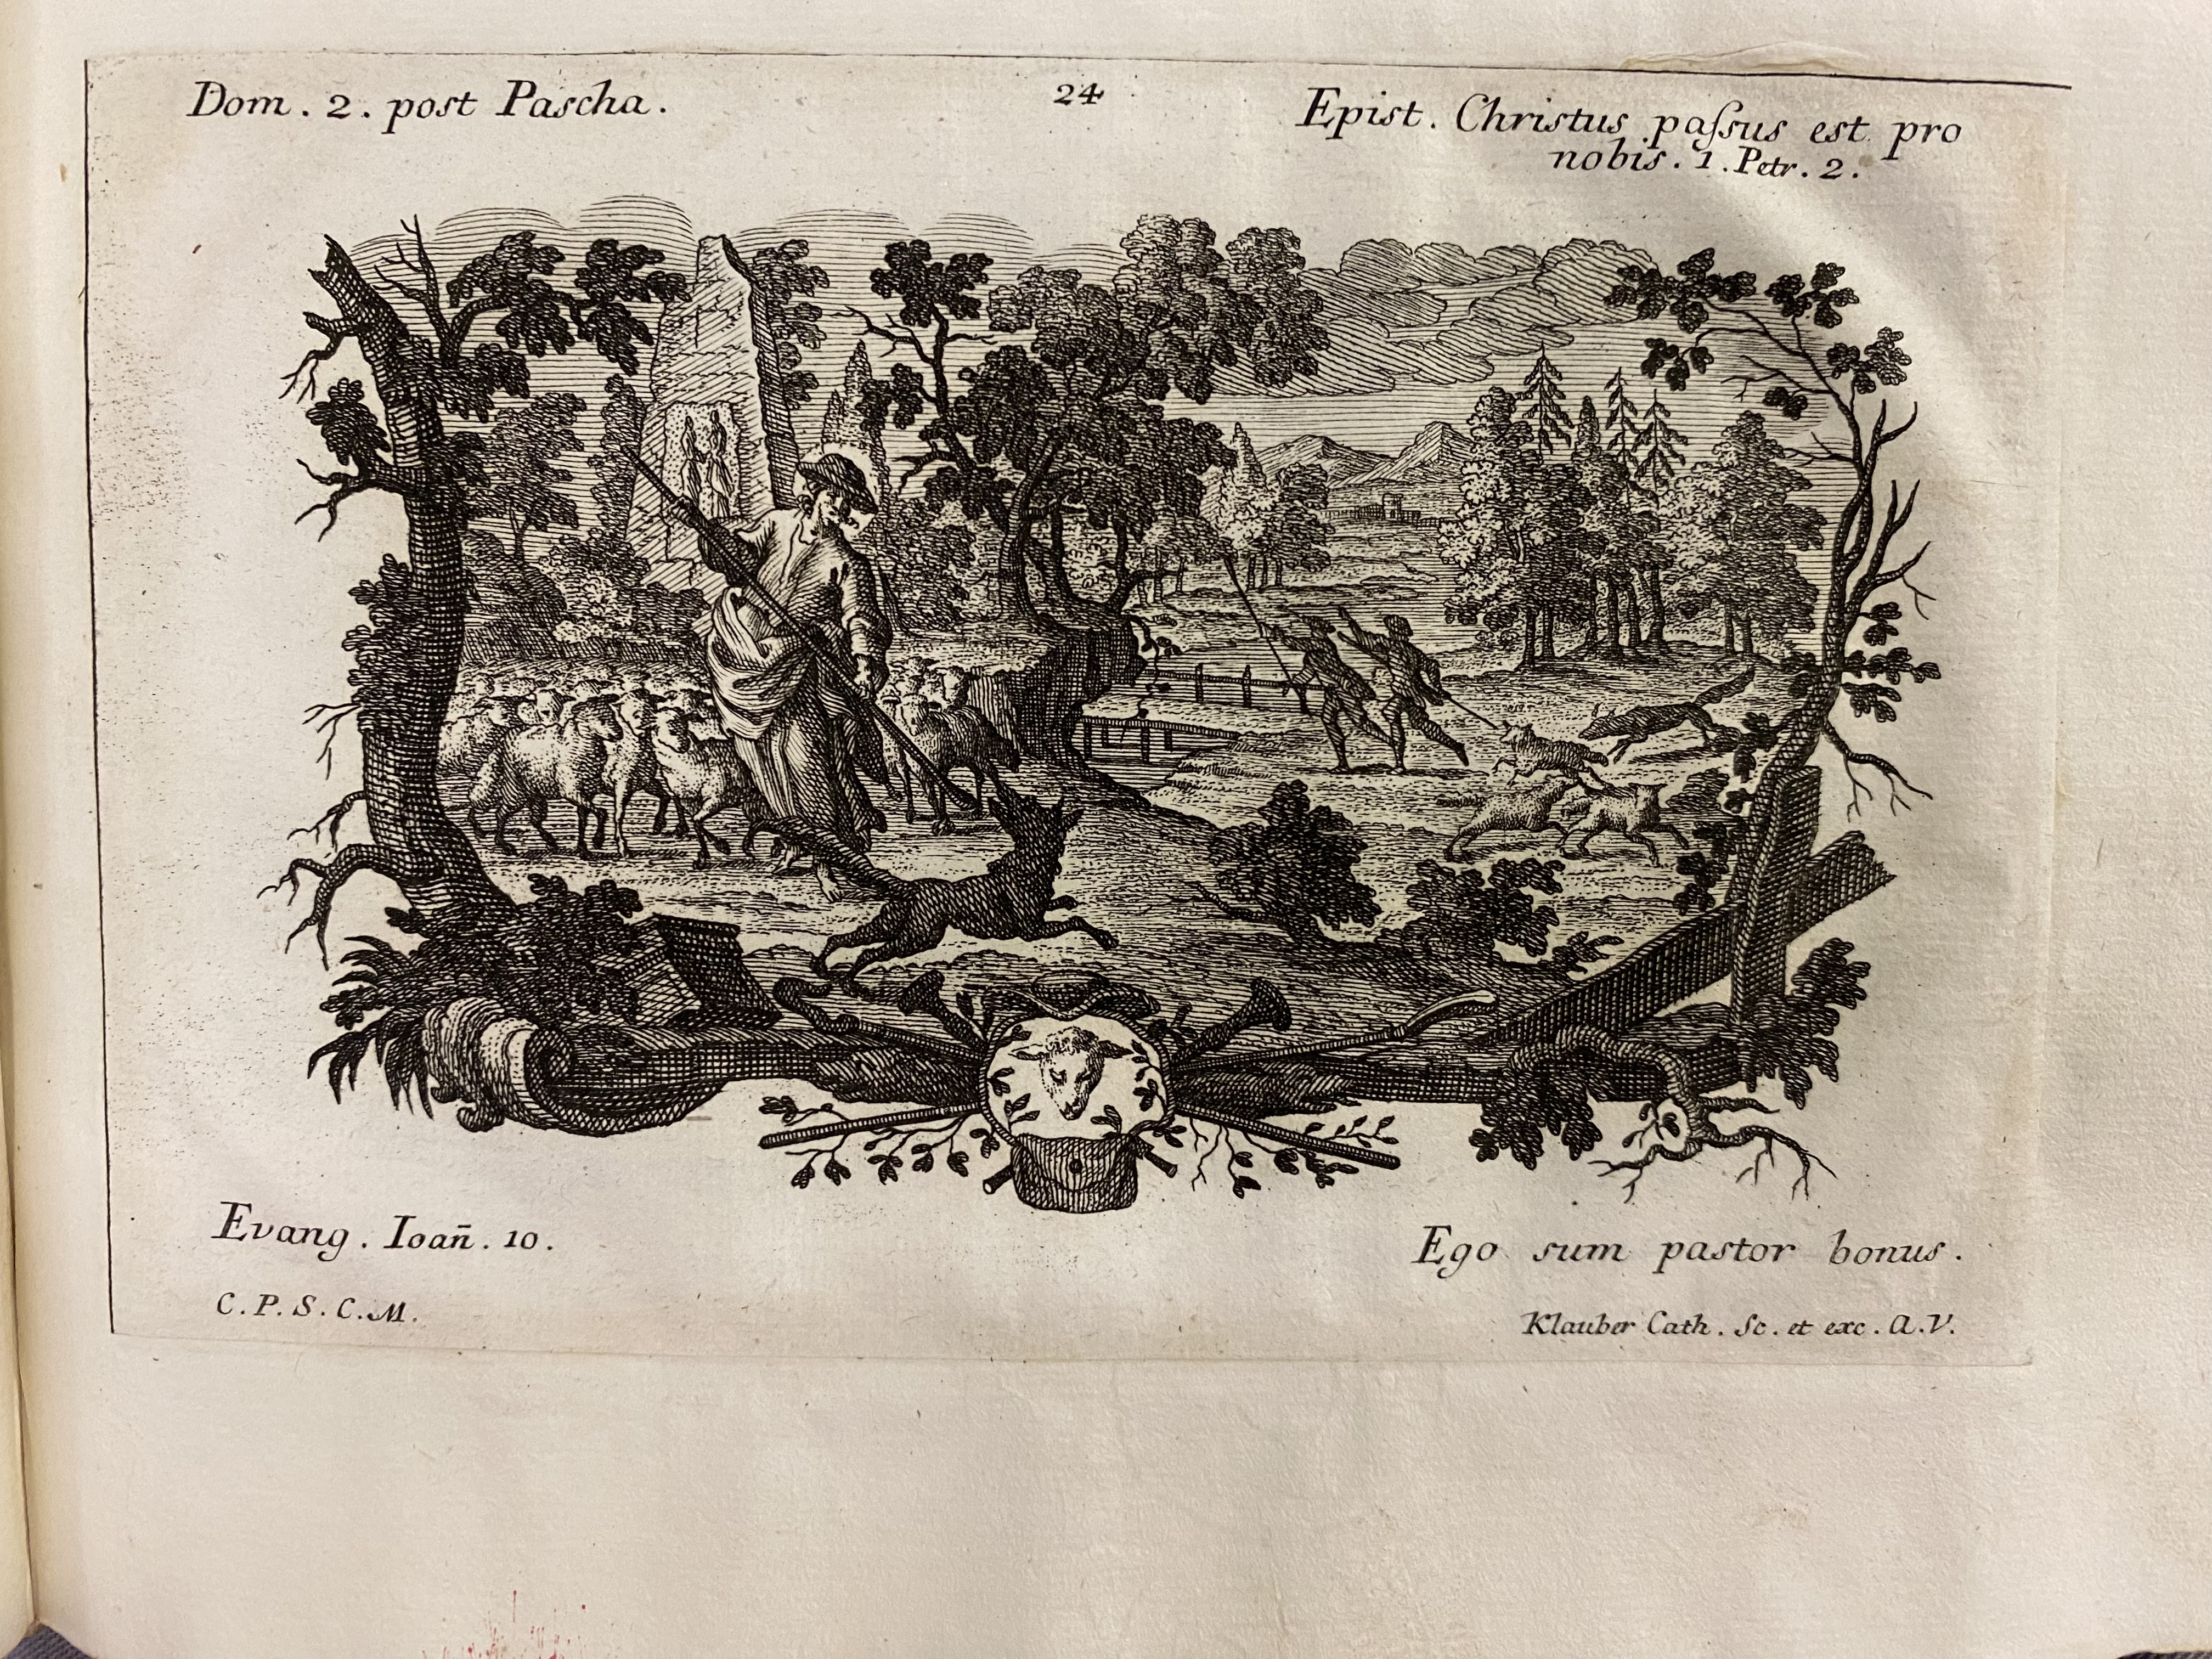 Dom. 2. post Pascha.
24
Epist. Christus paſsus est pro
nobis. 1. Petr. 2.
Evang. Ioan̄. 10.
Ego sum pastor bonus.
C. P. S. C. M.
Klauber Cath. Sc. et exc. A. V.